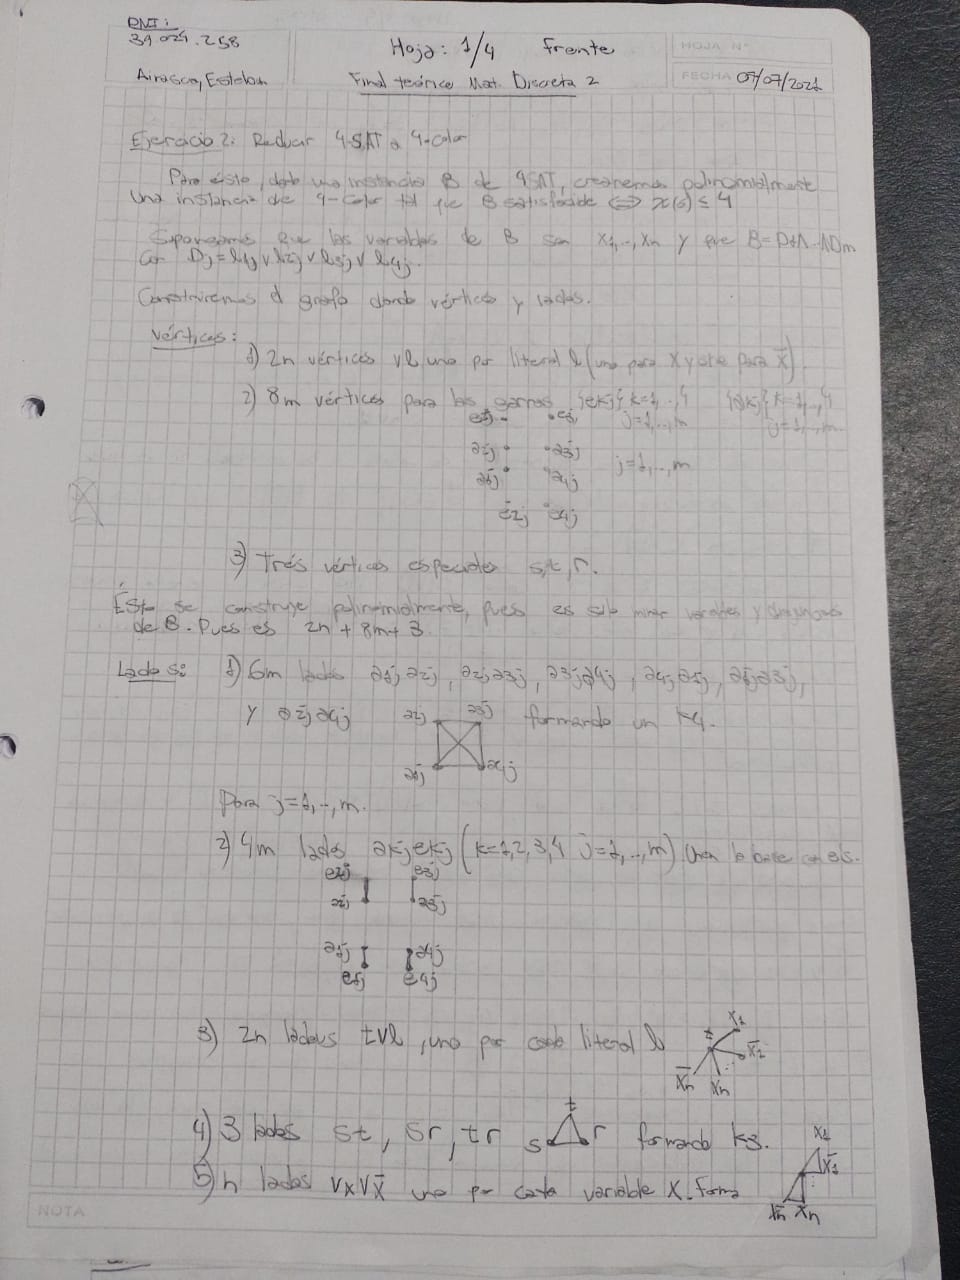 DNI:
39.024.258
Hoja: 1/4 Frente
HOJA N°
Airasca, Esteban
Final teórico Mat. Discreta 2
FECHA 07/07/2021
Ejercicio 2: Reducir 4-SAT a 4-color
Para ésto, dada una instancia B de 4SAT, crearemos polinomialmente
una instancia de 4-color tal que B satisfacible ⟺ χ(G) ≤ 4
Supongamos que las variables de B son x1,..,xn y que B=D1∧..∧Dm
con Dj = l1j ∨ l2j ∨ l3j ∨ l4j.
Construiremos el grafo dando vértices y lados.
Vértices:
1) 2n vértices vl uno por literal l (uno para x y otro para x̄)
2) 8m vértices para las garras {ekj} k=1,..,4 {akj} k=1,..,4
j=1,..,m j=1,..,m.
e2j e3j
a2j a3j j=1,..,m
a1j a4j
e1j e4j
3) Trés vértices especiales s,t,r.
Ésto se construye polinomialmente, pues es solo mirar variables y disjunciones
de B. Pues es 2n + 8m + 3
Lados: 1) 6m lados a1ja2j, a2ja3j, a3ja4j, a4ja1j, a1ja3j,
y a2ja4j a2j a3j formando un K4.
a1j a4j
Para j=1,..,m.
2) 4m lados akjekj (k=1,2,3,4 j=1,..,m) Unen la base con ext.
e2j e3j
a2j a3j
a1j a4j
e1j e4j
3) 2n lados tvl, uno por cada literal l
t x1 x̄2 x̄n xn
4) 3 lados st, sr, tr s t r formando K3.
5) n lados vxvx̄ uno por cada variable x. Forma
x1 x̄1
x̄n xn
NOTA